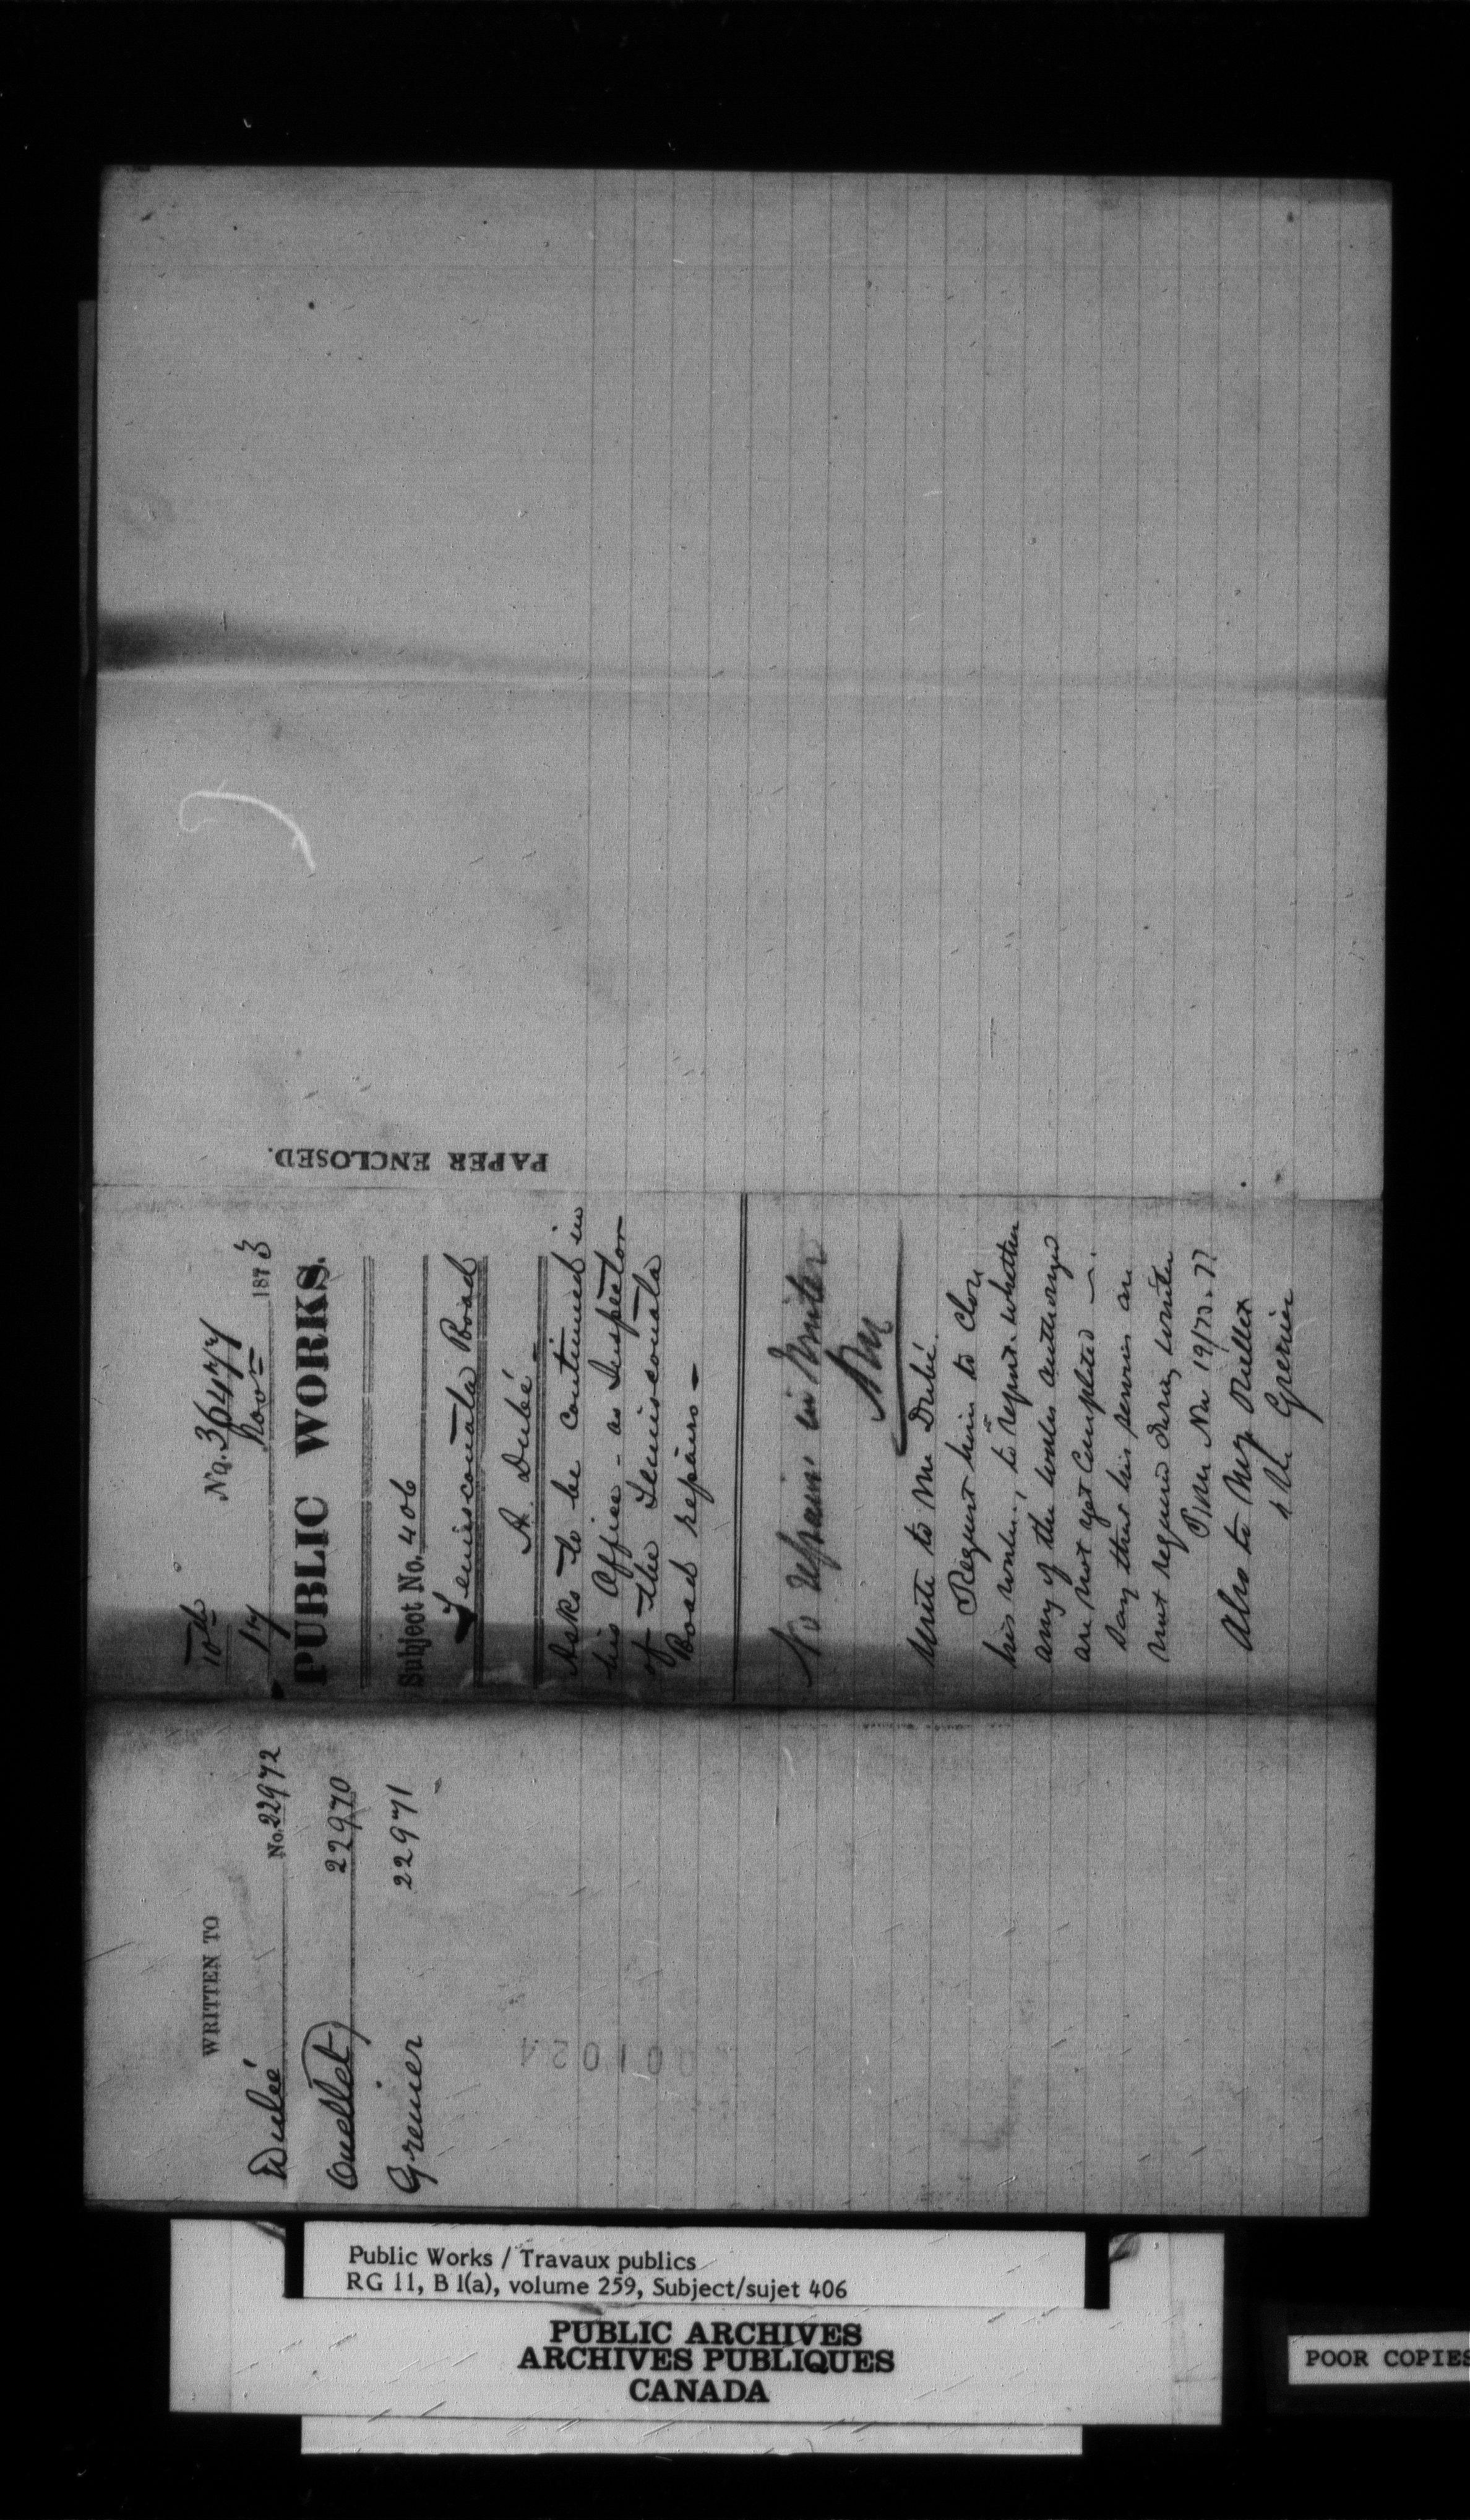 PAPER ENCLOSED.
No. 36477
10th
17 Novr 1873
PUBLIC WORKS.
Subject No. 406
Temisconata Road
A. Dubé -
Asks to be continued in
his Office - as Inspector
of the Temisconata
Road repairs -
No repairs in Winter
Write to Mr Dubé.
Request him to close
his works, to report whether
any of the works authorized
are not yet completed -.
Say that his services are
not required during winter
19/73.
Also to Mr
& Mr Grenier
WRITTEN TO
Dubé No. 22972
Ouellet 22970
Grenier 22971
001024
Public Works / Travaux publics
RG 11, B 1(a), volume 259, Subject/sujet 406
PUBLIC ARCHIVES
ARCHIVES PUBLIQUES
CANADA
POOR COPIES